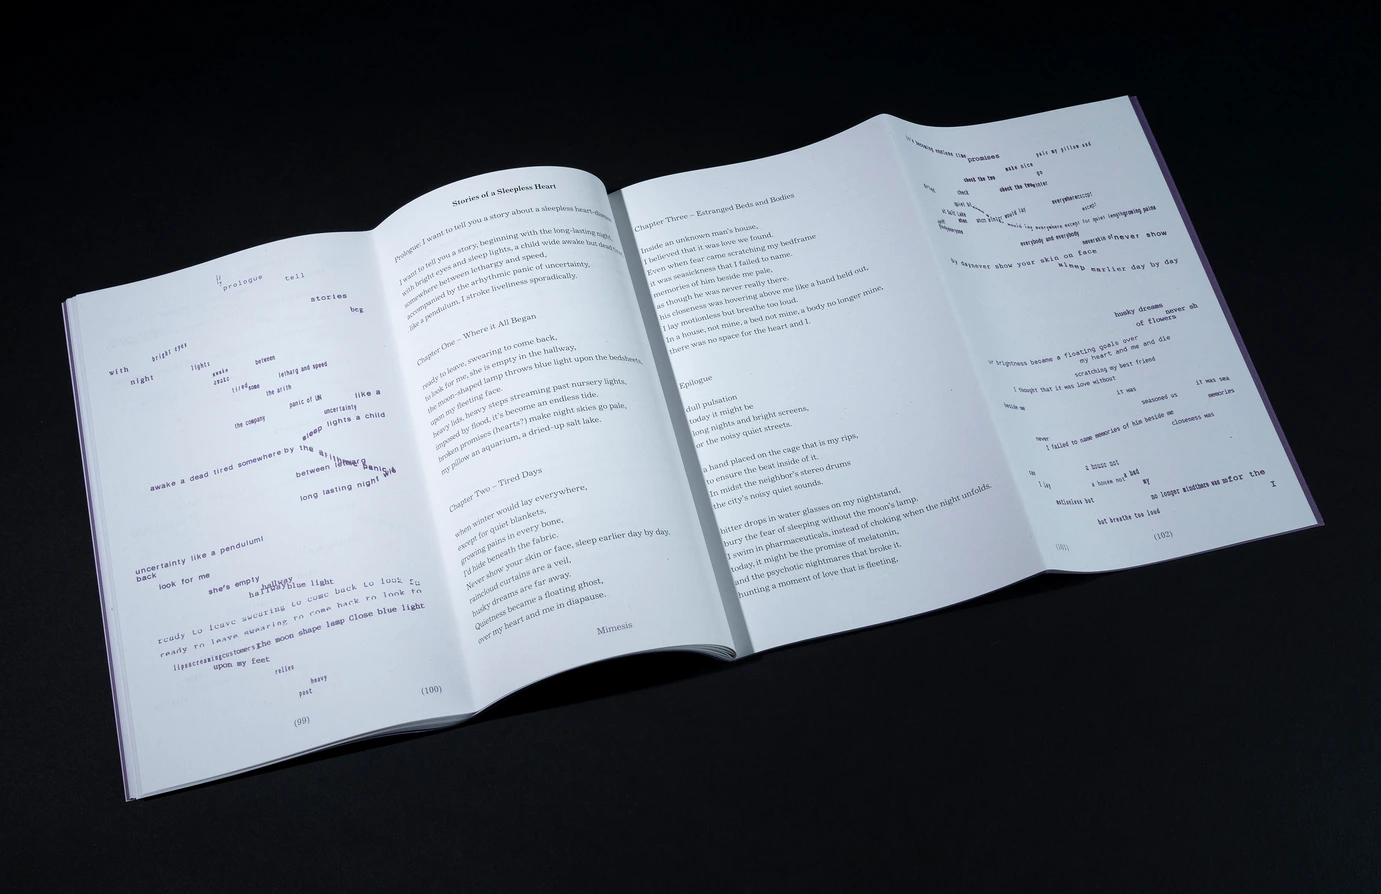 prologue tell
stories
beg
bright eyes
with
lights
between
night
awake
letharg and speed
tired some
the arith
panic of UN
like a
uncertainty
the company
sleep lights a child
awake a dead tired somewhere by the
between
long lasting night
uncertainty like a pendulum!
back
look for me
she's empty hallway
blue light
ready to leave swearing to come back to look to
ready to leave swearing to come back to look to
the moon shape lamp Close blue light
upon my feet
relies
heavy
past
(99)
(100)
Stories of a Sleepless Heart
Prologue: I want to tell you a story about a sleepless heart
I want to tell you a story, beginning with the long-lasting night,
with bright eyes and sleep lights, a child wide awake but dead
somewhere between lethargy and speed,
accompanied by the arhythmic panic of uncertainty,
like a pendulum. I stroke liveliness sporadically.
Chapter One – Where it All Began
ready to leave, swearing to come back,
to look for me, she is empty in the hallway,
the moon-shaped lamp throws blue light upon the bedsheets,
upon my fleeting face.
heavy lids, heavy steps streaming past nursery lights,
imposed by flood, it's become an endless tide.
broken promises (hearts?) make night skies go pale,
my pillow an aquarium, a dried-up salt lake.
Chapter Two – Tired Days
when winter would lay everywhere,
except for quiet blankets,
growing pains in every bone,
I'd hide beneath the fabric.
Never show your skin or face, sleep earlier day by day.
raincloud curtains are a veil,
husky dreams are far away.
Quietness became a floating ghost,
over my heart and me in diapause.
Mimesis
Chapter Three – Estranged Beds and Bodies
Inside an unknown man's house,
I believed that it was love we found.
Even when fear came scratching my bedframe
it was seasickness that I failed to name.
memories of him beside me pale,
as though he was never really there.
his closeness was hovering above me like a hand held out,
I lay motionless but breathe too loud.
In a house, not mine, a bed not mine, a body no longer mine,
there was no space for the heart and I.
Epilogue
dull pulsation
today it might be
long nights and bright screens,
or the noisy quiet streets.
a hand placed on the cage that is my rips,
to ensure the beat inside of it.
In midst the neighbor's stereo drums
the city's noisy quiet sounds.
bitter drops in water glasses on my nightstand,
bury the fear of sleeping without the moon's lamp.
I swim in pharmaceuticals, instead of choking when the night unfolds.
today, it might be the promise of melatonin,
and the psychotic nightmares that broke it.
hunting a moment of love that is fleeting,
it's becoming endless time
promises
pale my pillow and
make nice
go
check the two
check
everywhere
except
would lay everywhere except for quiet length growing pains
everybody and everybody
never show
by day never show your skin on face
sleep earlier day by day
husky dreams
never sh
of flowers
ur brightness became a floating goals over
my heart and me and die
scratching my best friend
I thought that it was love without
it was
it was sea
beside me
seasoned us
memories
never
I failed to name memories of him beside me
closeness was
a house not
I lay
a house not a bed
my
motionless but
no longer mind there was
for the
I
but breathe too loud
(101)
(102)